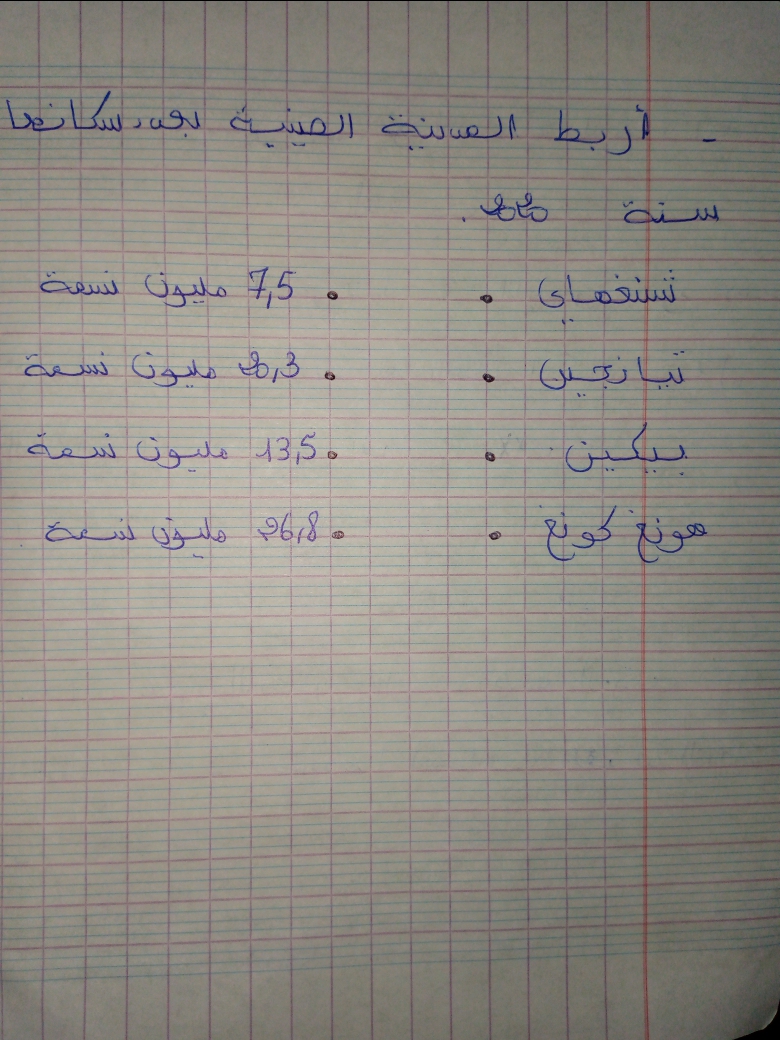 - أربط المدينة الصينية بعدد سكانها
سنة 2020.
شنغهاي • • 7,5 مليون نسمة
تيانجين • • 20,3 مليون نسمة
بيكين • • 13,5 مليون نسمة
هونغ كونغ • • 26,8 مليون نسمة